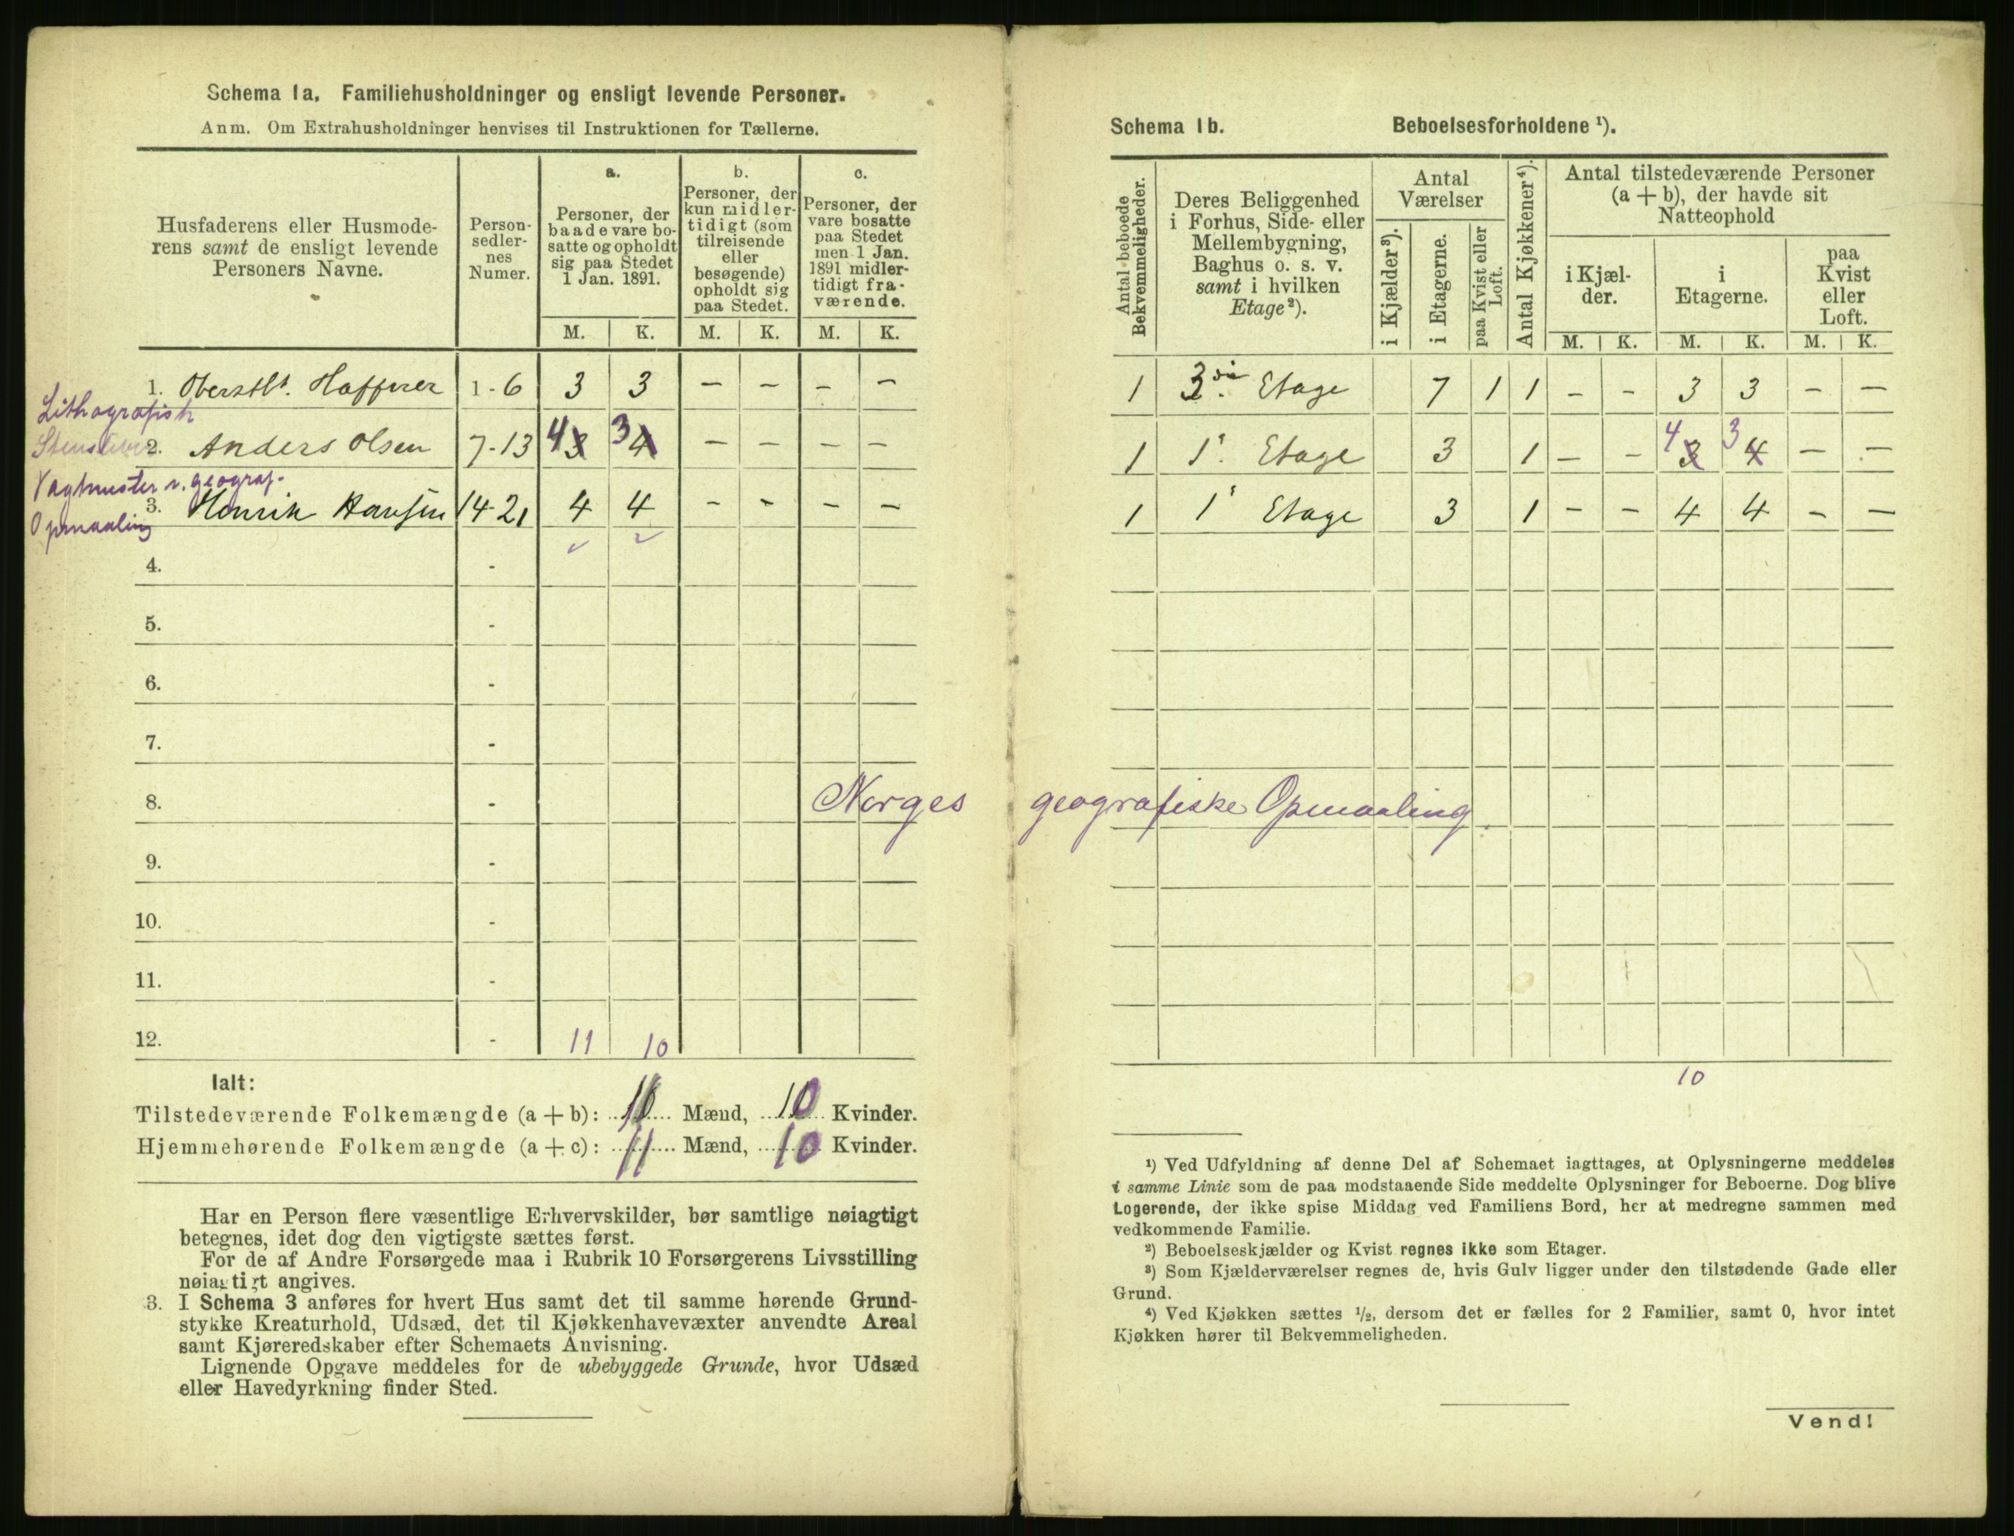 Schema 1a. Familiehusholdninger og ensligt levende Personer.
Anm. Om Extrahusholdninger henvises til Instruktionen for Tællerne.
Husfaderens eller Husmoderens samt de ensligt levende Personers Navne.
Personsedlernes Numer.
a.
Personer, der baade vare bosatte og opholdt sig paa Stedet 1 Jan. 1891.
b.
Personer, der kun midlertidigt (som tilreisende eller besøgende) opholdt sig paa Stedet.
c.
Personer, der vare bosatte paa Stedet men 1 Jan. 1891 midlertidigt fraværende.
M. K. M. K. M. K.
1. Oberstlt. Haffner 1-6 3 3 – – – –
Lithografisk
2. Anders Olsen 7-13 4 3 3 4 – – – –
Vagtmester v. geograf.
3. Henrik Hansen 14-21 4 4 – – – –
Opmaaling
4. -
5. -
6. -
7. -
8. - Norges geografiske Opmaaling.
9. -
10. -
11. -
12. - 11 10
Ialt:
Tilstedeværende Folkemængde (a + b): 11 Mænd, 10 Kvinder.
Hjemmehørende Folkemængde (a + c): 11 Mænd, 10 Kvinder.
Har en Person flere væsentlige Erhvervskilder, bør samtlige nøiagtigt
betegnes, idet dog den vigtigste sættes først.
For de af Andre Forsørgede maa i Rubrik 10 Forsørgerens Livsstilling
nøiagtigt angives.
3. I Schema 3 anføres for hvert Hus samt det til samme hørende Grund-
stykke Kreaturhold, Udsæd, det til Kjøkkenhavevæxter anvendte Areal
samt Kjøreredskaber efter Schemaets Anvisning.
Lignende Opgave meddeles for de ubebyggede Grunde, hvor Udsæd
eller Havedyrkning finder Sted.
Schema 1b. Beboelsesforholdene ¹).
Antal beboede Bekvemmeligheder.
Deres Beliggenhed i Forhus, Side- eller Mellembygning, Baghus o. s. v. samt i hvilken Etage²).
Antal Værelser
i Kjælder³).
i Etagerne.
paa Kvist eller Loft.
Antal Kjøkkener⁴).
Antal tilstedeværende Personer (a + b), der havde sit Natteophold
i Kjælder.
i Etagerne.
paa Kvist eller Loft.
M. K. M. K. M. K.
1 3die Etage 7 1 1 – – 3 3 – –
1 1' Etage 3 1 – – 4 3 3 4 – –
1 1' Etage 3 1 – – 4 4 – –
10
¹) Ved Udfyldning af denne Del af Schemaet iagttages, at Oplysningerne meddeles
i samme Linie som de paa modstaaende Side meddelte Oplysninger for Beboerne. Dog blive
Logerende, der ikke spise Middag ved Familiens Bord, her at medregne sammen med
vedkommende Familie.
²) Beboelseskjælder og Kvist regnes ikke som Etager.
³) Som Kjælderværelser regnes de, hvis Gulv ligger under den tilstødende Gade eller
Grund.
⁴) Ved Kjøkken sættes ½, dersom det er fælles for 2 Familier, samt 0, hvor intet
Kjøkken hører til Bekvemmeligheden.
Vend!